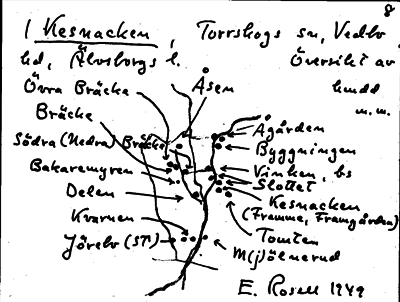 8
1 Kesnacken, Torrskogs sn, Vedbo
hd, Älvsborgs l. Översikt av
Övra Bräcke
Åsen
hmdd
m.m.
Bräcke
Ågården
Södra (Nedra) Bräcke
Byggningen
Bakaremyren
Vinken, bs
Slottet
Delen
Kesnacken
(Framme, Framgården)
Kvarnen
Tomten
Jörebo (ST?)
M(j)ölnerud
E. Rosell 1949